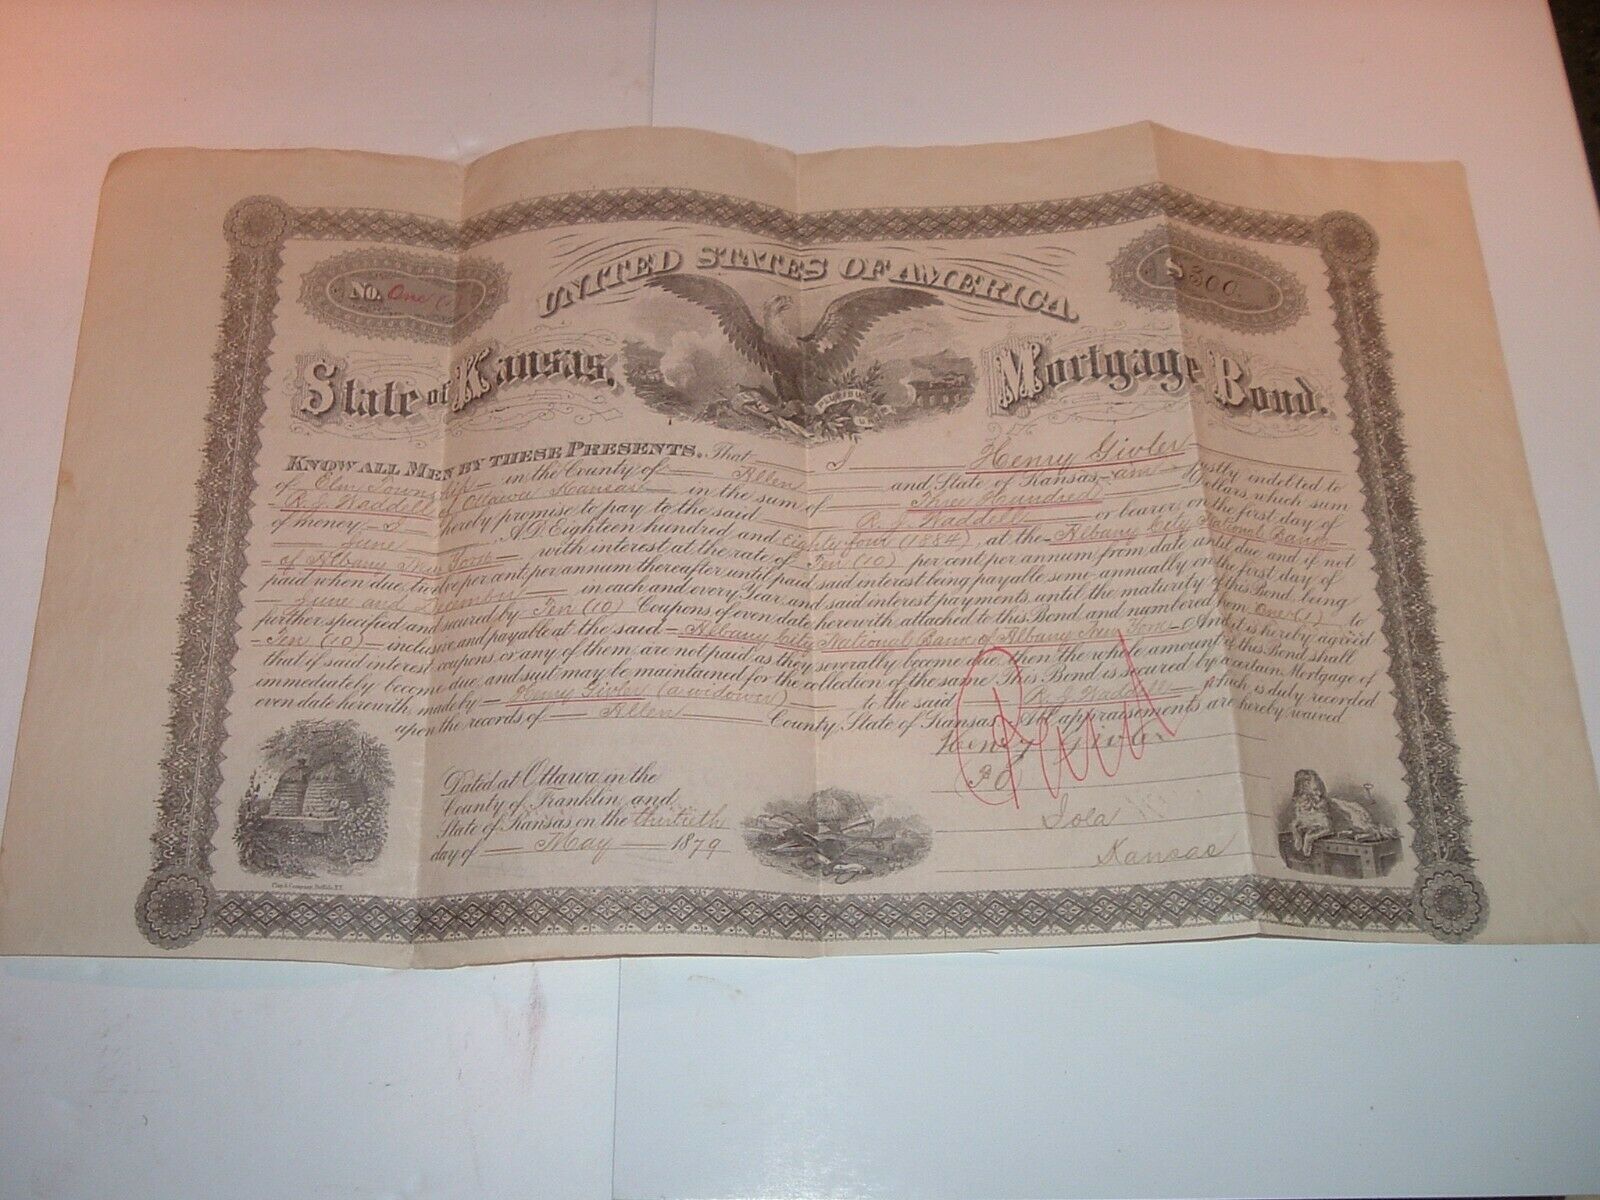 UNITED STATES OF AMERICA.
NO. One (1)
$300.
State of Kansas,
Mortgage Bond.
PLURIBUS
KNOW ALL MEN BY THESE PRESENTS. That I Henry Givler
of Elm Township in the County of Allen and State of Kansas, am justly indebted to
R. J. Waddell of Ottawa Kansas in the sum of Three Hundred Dollars, which sum
of money I hereby promise to pay to the said R. J. Waddell or bearer, on the first day of
June A.D. Eighteen hundred and Eighty four (1884) at the Albany City National Bank
of Albany New York with interest at the rate of Ten (10) per cent per annum from date until due and if not
paid when due, twelve per cent per annum thereafter until paid, said interest being payable semi-annually on the first day of
June and December in each and every Year, and said interest payments, until the maturity of this Bond, being
further specified and secured by Ten (10) Coupons of even date herewith attached to this Bond and numbered from One (1) to
Ten (10) inclusive and payable at the said Albany City National Bank of Albany New York And it is hereby agreed
that if said interest coupons, or any of them, are not paid as they severally become due, then the whole amount of this Bond shall
immediately become due, and suit may be maintained for the collection of the same. This Bond is secured by a certain Mortgage of
even date herewith, made by Henry Givler (a widower) to the said R. J. Waddell which is duly recorded
upon the records of Allen County, State of Kansas. All appraisements are hereby waived.
Paid
Henry Givler
P.O.
Iola
Kansas
Dated at Ottawa, in the
County of Franklin, and
State of Kansas on the thirtieth
day of May 1879
Clay & Company, Buffalo, N.Y.